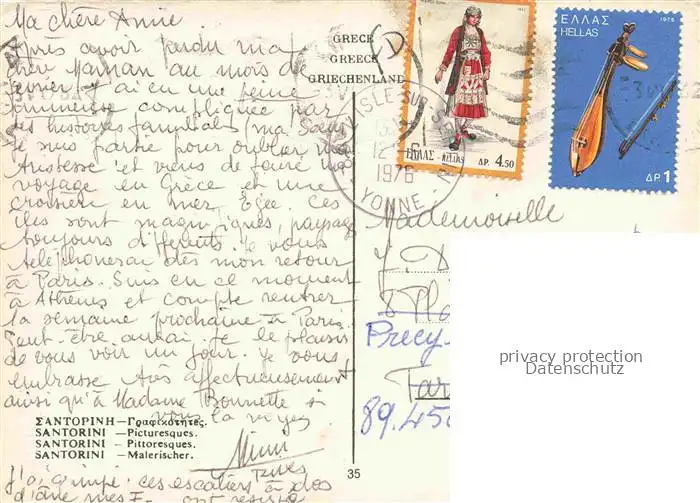 Ma chère Annie
Après avoir perdu ma
chère Maman au mois de
février j'ai eu une peine
immense compliquée par
des histoires familiales (ma Sœur
Je suis partie pour oublier ma
tristesse et viens de faire un
voyage en Grèce et une
croisière en mer Egée. Ces
iles sont magnifiques, paysages
toujours différents. Je vous
téléphonerai dès mon retour
à Paris. Suis en ce moment
à Athènes et compte rentrer
la semaine prochaine à Paris.
Peut-être aurai-je le plaisir
de vous voir un jour. Je vous
embrasse très affectueusement
ainsi qu'à Madame Bonnette si
vous la voyez.
ΣΑΝΤΟΡΙΝΗ—Γραφικότητες.
SANTORINI —Picturesques.
SANTORINI —Pittoresques.
SANTORINI —Malerischer.
J'ai grimpé ces escaliers à dos
d'âne mes F. ont résisté
35
GRECE
GREECE
GRIECHENLAND
ΕΛΛΑΣ - HELLAS ΔΡ. 4.50
ΕΛΛΑΣ 1975
HELLAS
ΔΡ. 1
12
1976
YONNE
Mademoiselle
Precy
89.450
privacy protection
Datenschutz